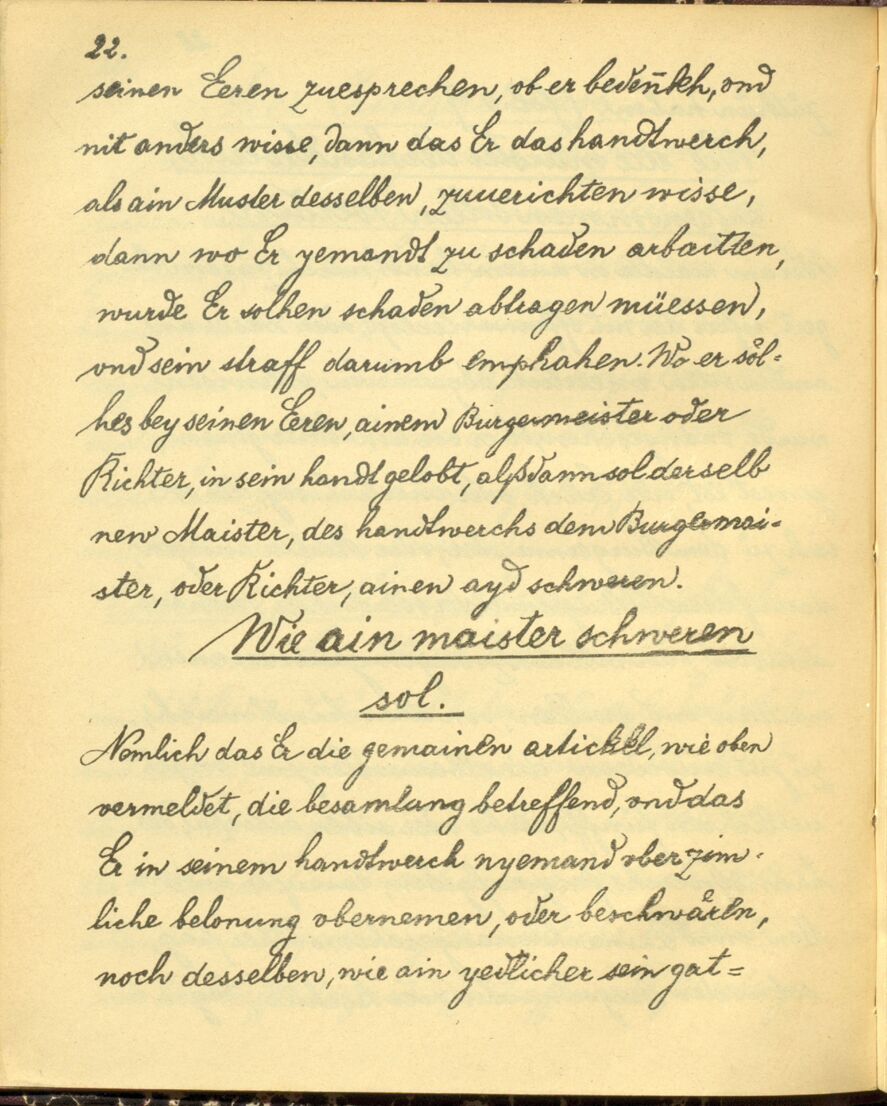 22.
seinen Eeren zuesprechen, ob er bedenn̄kh, vnd
nit anders wisse, dann das Er das handtwerch,
als ain Muster desselben, zuuerichten wisse,
dann wo Er yemandt zu schaden arbaitten,
wurde Er solhen schaden abtragen müessen,
vnd sein straff darumb emphahen. Wo er söl-
hes bey seinen Eeren, ainem Burgermeister oder
Richter, in sein handt gelobt, alßdann sol derselb
new Maister, des handtwerchs dem Burgermai-
ster, oder Richter, ainen ayd schweren.
Wie ain maister schweren
sol.
Nemlich das Er die gemainen artickhl, wie oben
vermeldet, die besamlung betreffend, vnd das
Er in seinem handtwerch nyemand vber zim-
liche belonung vbernemen, oder beschwären,
noch desselben, wie ain yedlicher sein gat=